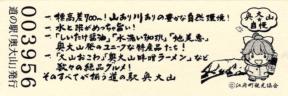 003956
道の駅「奥大山」発行
奥大山
自慢
標高差900m!山あり川ありの豊かな自然環境!
水と米がめっちゃ旨い!
「しいたけ醤油」「水洗い珈琲」「地花恵」
奥大山発のユニークな特産品たち!
「大山おこわ」「奥大山味噌ラーメン」など
数々の絶品グルメ!
そのすべてが揃う道の駅奥大山
©江府町観光協会